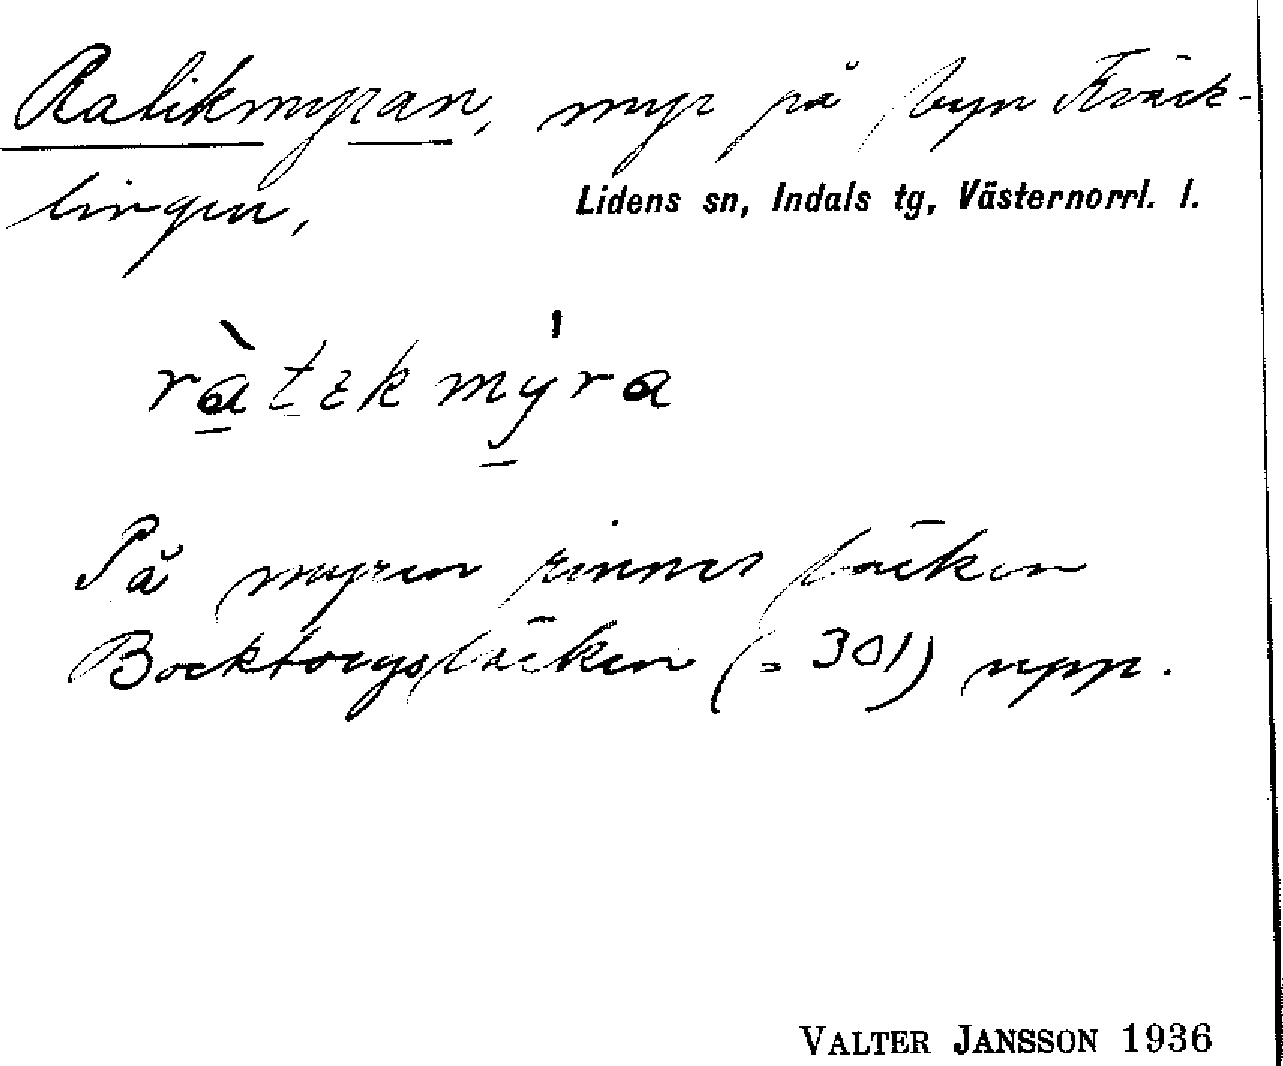 Ralikmyran, myr på byn Kväck-
lingen, Lidens sn, Indals tg, Västernorrl. l.
ràtɛkmy̍ra
På myren rinner bäcken
Bocktorgsbäcken (= 301) upp.
VALTER JANSSON 1936